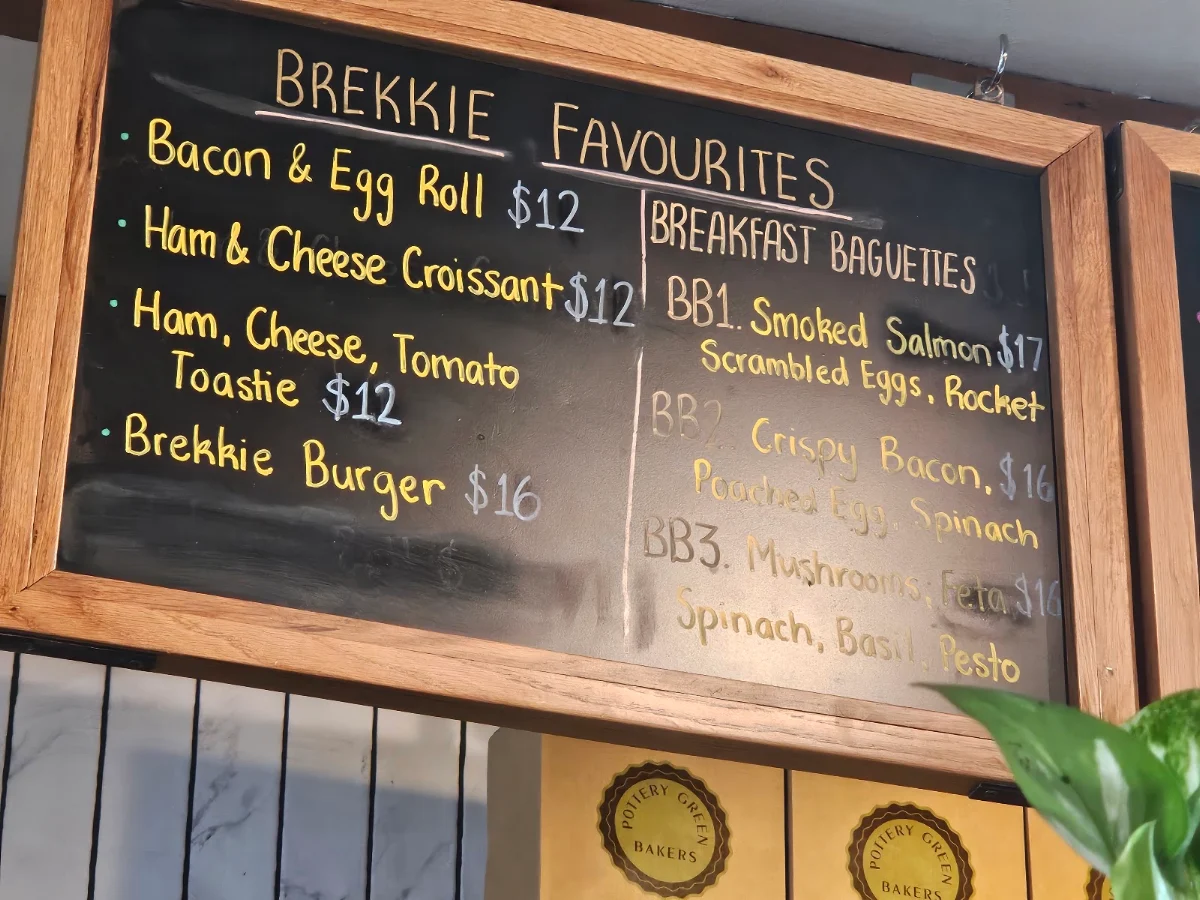 BREKKIE FAVOURITES
• Bacon & Egg Roll $12
• Ham & Cheese Croissant $12
• Ham, Cheese, Tomato
Toastie $12
• Brekkie Burger $16
BREAKFAST BAGUETTES
BB1. Smoked Salmon $17
Scrambled Eggs, Rocket
BB2. Crispy Bacon, $16
Poached Egg, Spinach
BB3. Mushrooms, Feta $16
Spinach, Basil, Pesto
POTTERY GREEN
BAKERS
POTTERY GREEN
BAKERS